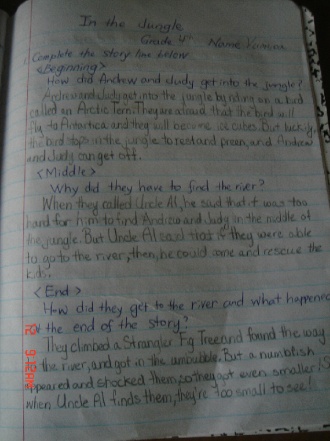 In the Jungle
Grade 4th Name
Complete the story line below
<Beginning>
How did Andrew and Judy get into the jungle?
Andrew and Judy get into the jungle by riding on a bird
called an Arctic Tern. They are afraid that the bird will
fly to Antartica and they will become ice cubes. But luckily,
the bird stops in the jungle to rest and preen, and Andrew
and Judy can get off.
<Middle>
Why did they have to find the river?
When they called Uncle Al, he said that it was too
hard for him to find Andrew and Judy in the middle of
the jungle. But Uncle Al said that if they were able
to go to the river, then, he could come and rescue the
kids.
<End>
How did they get to the river and what happened
at the end of the story?
They climbed a Strangler Fig Tree and found the way
the river, and got in the . But a numbfish
appeared and shocked them, so they got even smaller! So
when Uncle Al finds them, they're too small to see!